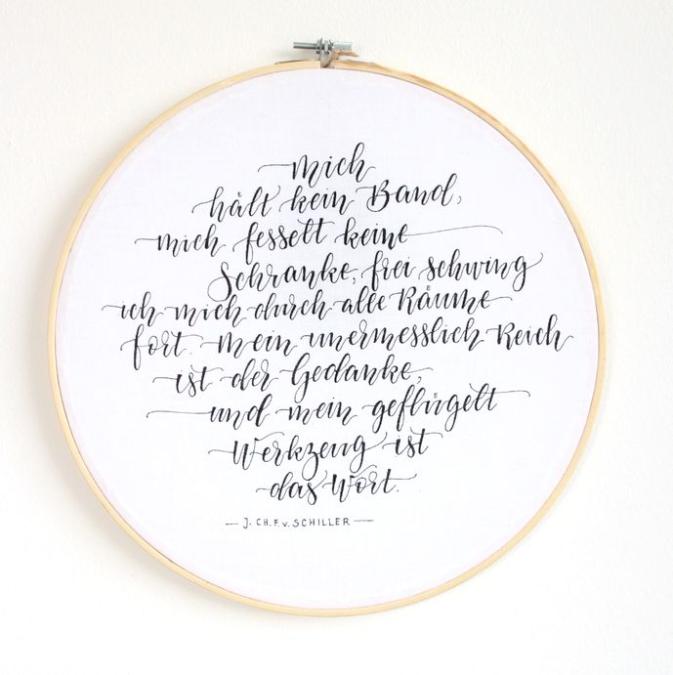 mich
hält kein Band,
mich fesselt keine
Schranke, frei schwing
ich mich durch alle Räume
fort. mein unermesslich Reich
ist der Gedanke,
und mein geflügelt
Werkzeug ist
das Wort.
— J. CH. F. v. SCHILLER —